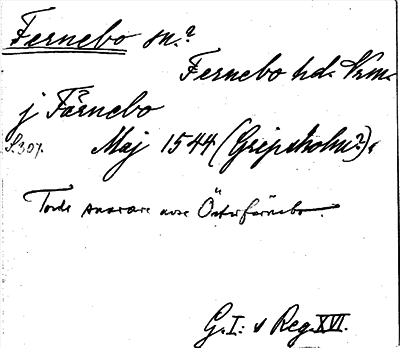 Fernebo sn.?
Fernebo hd. Vrm.
j Färnebo
S. 307. Maj 1544 (Gripsholm?).
Torde snarare avse Österfärnebo.
G. I:s Reg. XVI.